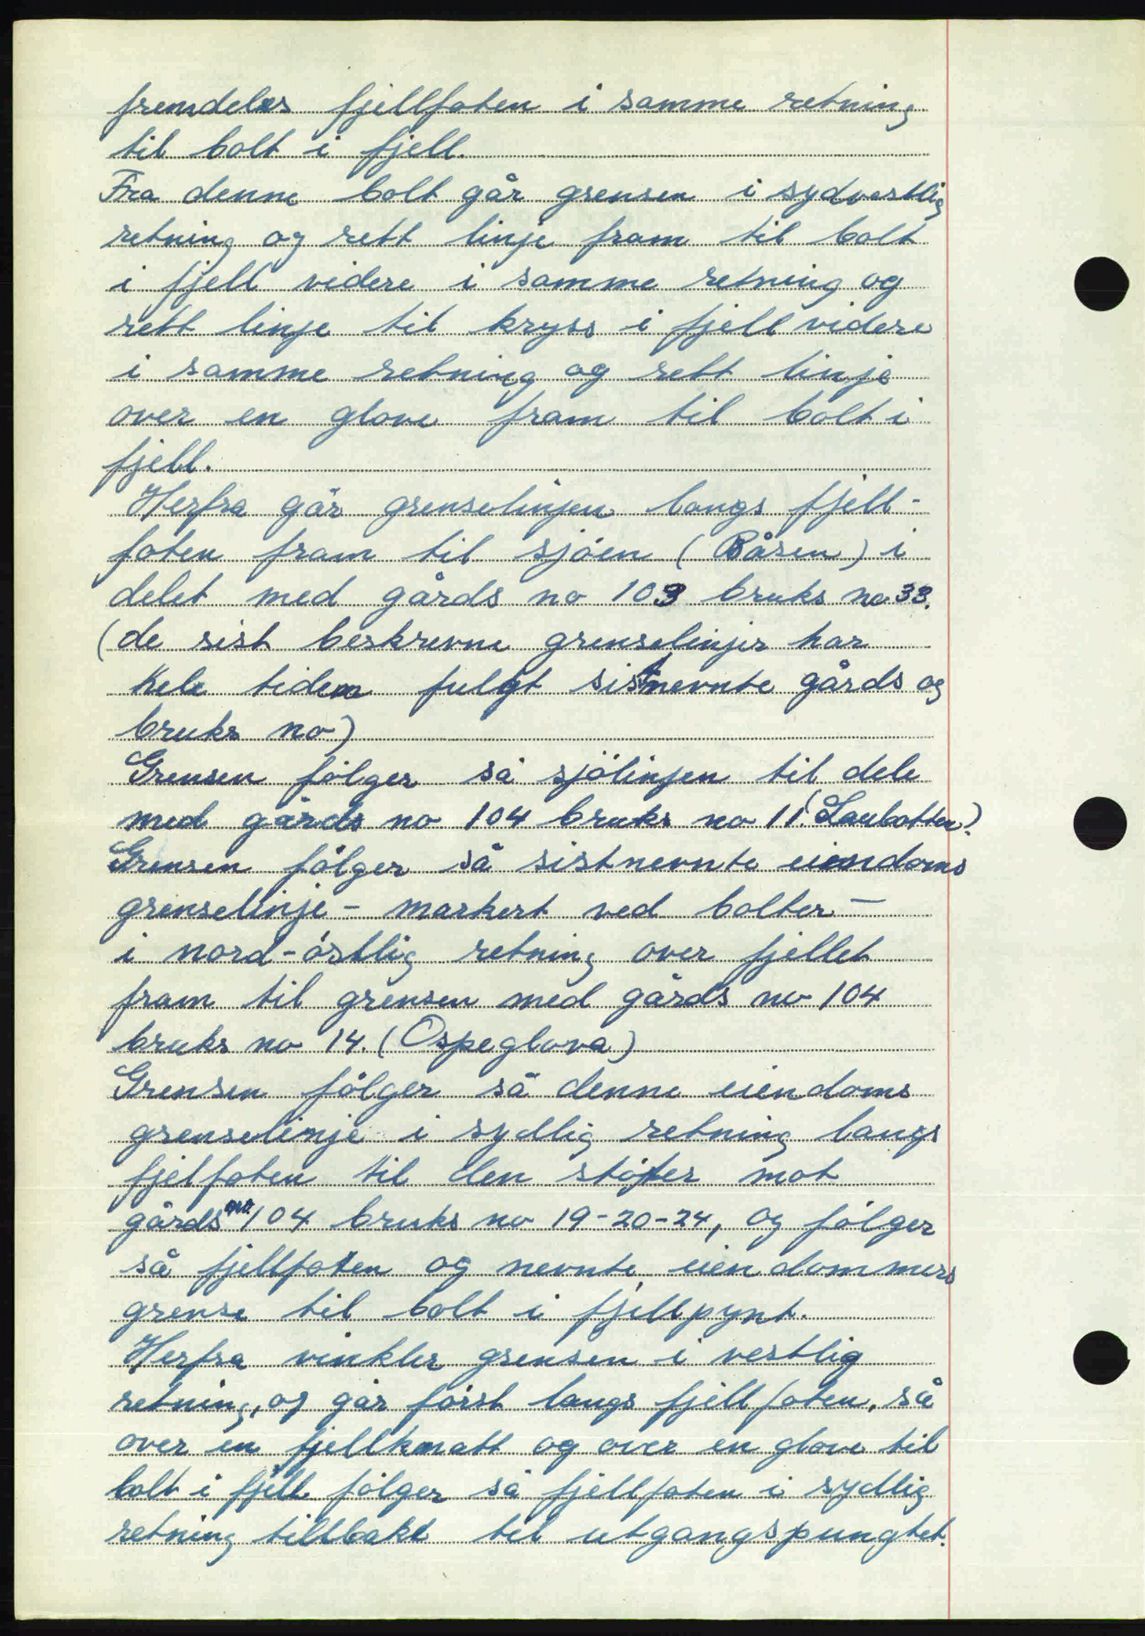 fremdeles fjellfoten i samme retning
til bolt i fjell.
Fra denne bolt går grensen i sydvestlig
retning og rett linje fram til bolt
i fjell videre i samme retning og
rett linje til kryss i fjell videre
i samme retning og rett linje
over en glove fram til bolt i
fjell.
Herfra går grenselinjen langs fjell-
foten fram til sjøen (Båsen) i
delet med gårds no 103 bruks no 33.
(de sist beskrevne grenselinjer har
hele tiden fulgt sistnevnte gårds og
bruks no)
Grensen følger så sjølinjen til dele
med gårds no 104 bruks no 11. (Laubotten).
Grensen følger så sistnevnte eiendoms
grenselinje - markert ved bolter -
i nord-østlig retning over fjellet
fram til grensen med gårds no 104
bruks no 14. (Ospeglova)
Grensen følger så denne eiendoms
grenselinje i sydlig retning langs
fjelfoten til den støter mot
gårds no 104 bruks no 19-20-24, og følger
så fjellfoten og nevnte eiendommers
grense til bolt i fjellpynt.
Herfra vinkler grensen i vestlig
retning, og går først langs fjellfoten, så
over en fjellknatt og over en glove til
bolt i fjell følger så fjellfoten i sydlig
retning tillbake til utgangspungtet.